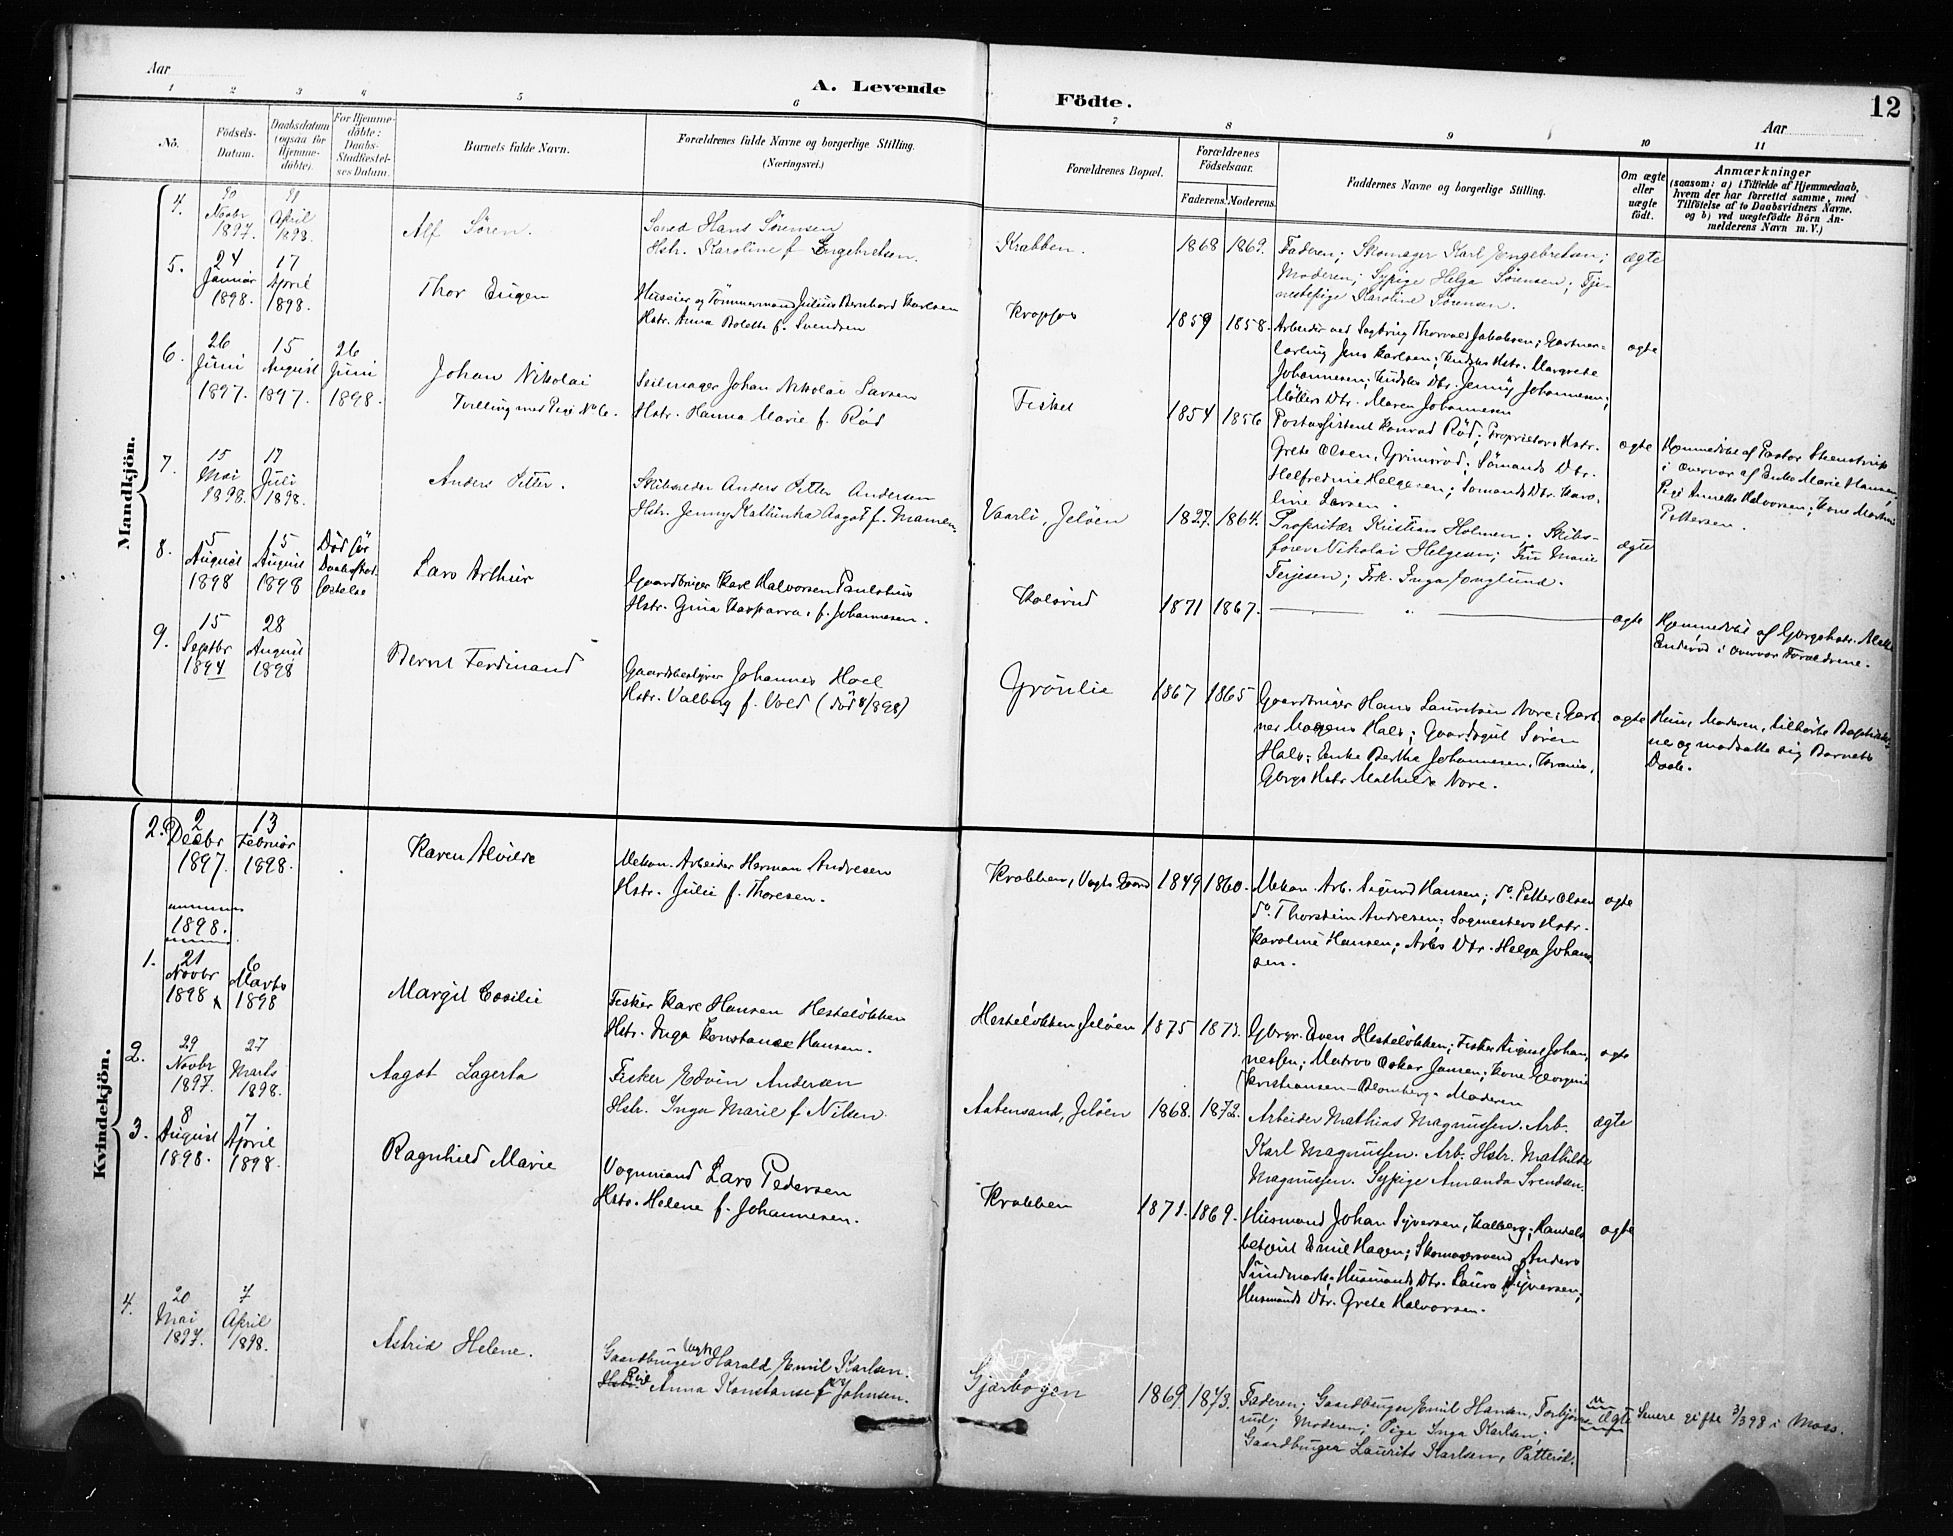 Aar
A. Levende
Födte.
12
Aar
1 2 3 4 5 6 7 8 9 10 11
No.
Födsels-
Datum.
Daabsdatum
(ogsaa for
Hjemme-
döbte).
For Hjemme-
döbte:
Daabs-
Stadfæstel-
ses Datum.
Barnets fulde Navn.
Forældrenes fulde Navne og borgerlige Stilling.
(Næringsvei.)
Forældrenes Bopæl.
Forældrenes
Födselsaar.
Faderens. Moderens.
Faddernes Navne og borgerlige Stilling.
Om ægte
eller
uægte
födt.
Anmærkninger
(saasom: a) i Tilfælde af Hjemmedaab,
hvem der har forrettet samme, med
Tilföielse af to Daabsvidners Navne.
og b) ved uægtefödte Börn An-
melderens Navn m. V.)
Mandkjön.
4.
Novbr
1897.
April
1898.
Alf Sören.
Hans Sörensen
Hstr. Karoline f. Engebretsen.
Krabben.
1868 1869.
Faderen; Skomager Karl Engebretsen;
Moderen; Sypige Helga Sörensen; Tje-
nestepige Karoline Sörensen.
ægte
5.
24
Januar
1898.
17
April
1898.
Thor Eugen
Huseier og Tömmermand Julius Bernhard Karlsen
Hstr. Anna Bolette f. Svendsen
Kropfos
1859 1858.
Arbeider ved Sagbrug Thorvald Jakobsen; Gartner-
lærling Jens Karlsen; Hstr. Margrete
Johannesen; Dtr. Jenny Johannesen;
Möllers Dtr. Maren Johannesen
ægte
6.
26
Juni
1897.
15
August
1897.
26
Juni
1898.
Johan Nikolai
Tvilling med Pige No 6.
Seilmager Johan Nikolai Larsen
Hstr. Hanna Marie f. Röd
Fiske
1854 1856
Postassistent Konrad Röd; Proprietærs Hstr.
Grete Olsen, Grimsröd; Sömands Dtr.
Helfredine Helgesen; Sömands Dtr. Karo-
line Larsen.
ægte
Hjemmedöbt af Pastor Steenstrup
i Overvær af Enke Marie Hansen,
Pige Annette Halvorsen; Kone Martine
Pettersen.
7.
15
Mai
1898.
17
Juli
1898.
Anders Petter.
Skibsreder Anders Petter Andersen
Hstr. Jenny Kathinka Aagot f. Mamen
Vaarli, Jelöen
1827. 1864.
Proprietær Kristian Holmen; Skibs-
förer Nikolai Helgesen; Fru Marie
Terjesen; Frk. Inga Jonglund.
ægte
8.
5
August
1898
15
August
1898
Död för
Daabsstad-
fæstelse
Lars Arthur
Gaardbruger Karl Halvorsen Paulshus
Hstr. Gina Kasparra f. Johannesen.
Kolsrud
1871 1867.
ægte
Hjemmedöbt af Gbrgs hstr. Mathe
Enderöd i Overvær Forældrene.
9.
15
Septbr
1894
28
August
1898
Bernt Ferdinand
Gaardsbestyrer Johannes Hoel
Hstr. Valborg f. Vold (död 8/898)
Grönlie
1867 1865
Gaardbruger Hans Lauritsen Nore; Gart-
ner Mogens Hals; Gaardsgut Sören
Hals; Enke Berthe Johannesen, Krania,
Gbrgs Hstr Mathilde Nore.
ægte
Hun, Moderen, tilhörte Baptister-
ne og modsatte sig Barnets
Daab.
Kvindekjön.
2.
2
Decbr
1897.
13
Februar
1898.
Karen Alvilde
Mekan. Arbeider Herman Andresen
Hstr. Julie f. Thoresen.
Krabben, Vogts Gaard
1849 1860.
Mekan. Arb. Sigurd Hansen; do. Petter Olsen
do. Thorstein Andresen; Sagmesters Hstr.
Karoline Hansen; Arbs Dtr. Helga Johan-
sen.
ægte
1898.
1.
21
Novbr
1898
6
Marts
1898
Margit Cesilie
Fisker Karl Hansen Hestelökken
Hstr. Inga Konstanse Hansen.
Hestelökken, Jelöen
1875 1873.
Gbrgr. Even Hestelökken; Fisker August Johan-
nessen; Matros Oskar Jansen; Kone Georgine
Kristiansen-Blomberg. Moderen
ægte
2.
29
Novbr
1897.
27
Marts
1898.
Aagot Lagerta
Fisker Edvin Andersen
Hstr. Inga Marie f. Nilsen
Aabensand, Jelöen
1868. 1872.
Arbeider Mathias Magnussen. Arb.
Karl Magnussen. Arb. Hstr. Mathilde
Magnussen. Sypige Amanda Svendsen.
ægte
3.
8
August
1898.
7
April
1898.
Ragnhild Marie
Vognmand Lars Pedersen
Hstr. Helene f. Johannesen.
Krabben
1871. 1869.
Husmand Johan Syversen, Kalberg; Handels-
betjent Emil Hagen; Skomagersvend Anders
Sundmark; Husmands Dtr. Laura Syversen;
Husmands Dtr. Grete Halvorsen.
ægte
4.
20
Mai
1897.
7
April
1898.
Astrid Helene.
Gaardbruger Harald Emil Karlsen.
Hstr. Anna Konstanse f. Johnsen.
Gjærbogen
1869. 1873.
Faderen; Gaardbruger Emil Hansen, Torbjörns-
rud; Moderen; Pige Inga Karlsen;
Gaardbruger Laurits Karlsen, Patteröd.
u
ægte
Senere gifte 3/3 98 i Moss.